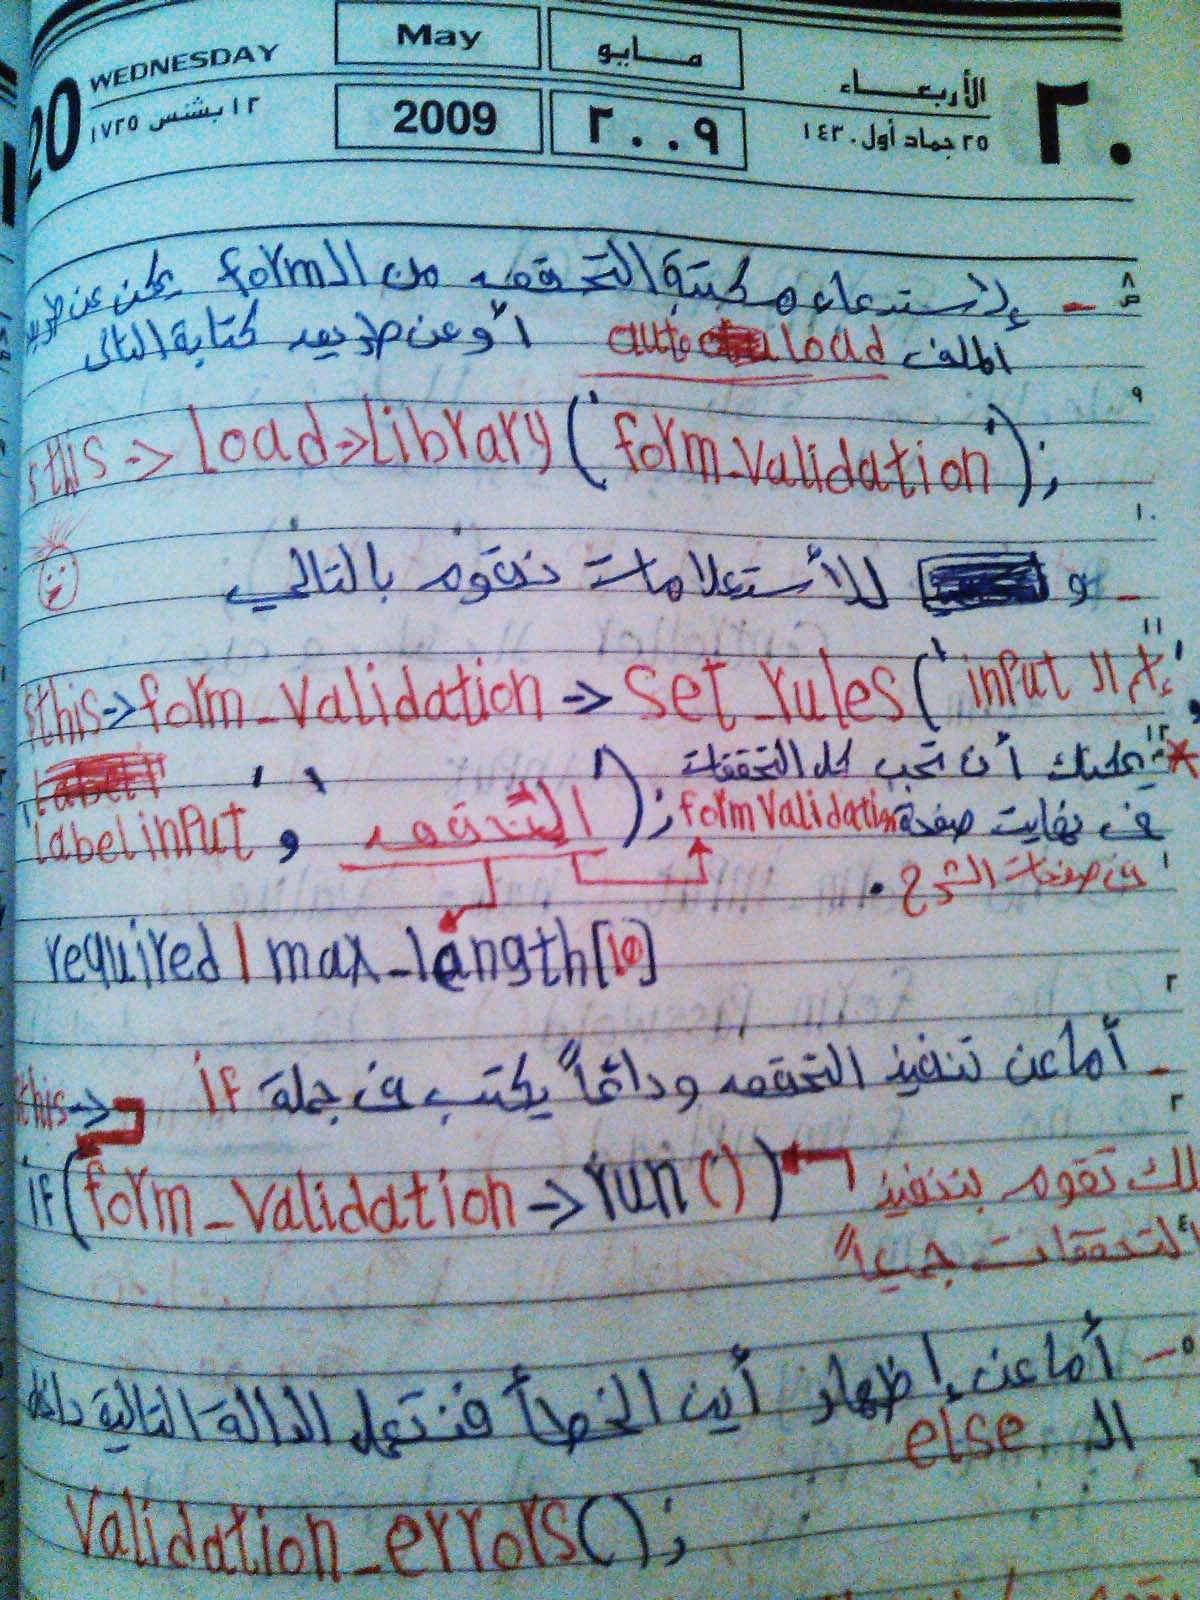 20 WEDNESDAY May مـايو الأربعـاء ٢٠
١٢ بشنس ١٧٢٥ 2009 ٢٠٠٩ ٢٥ جماد أول ١٤٣٠
٨ ص
- لإستدعاء مكتبة التحقق من الـ form يمكن عن طريق
الملف auto load أو عن طريق كتابة التالى
٩
$this->Load->Library('form_validation');
١٠
- و للأستعلامات نقوم بالتالي
١١
$this->form_validation->set_rules('input إسم الـ',
١٢
* يمكنك أن تجب كل التحققات
'Label input', 'التحقق'); form Validation فى نهايت صفحة
١
فى صفحات الشرح .
required|max_length[10]
٢
- أما عن تنفيذ التحقق ودائماً يكتب فى جملة if
٣
$this->
if(form_validation->run()) لك تقوم بتنفيذ
٤
التحققات جميعاً
٥
- أما عن إظهار أين الخطأ فنستعمل الدالة التالية داخل
الـ else
٦
Validation_errors();